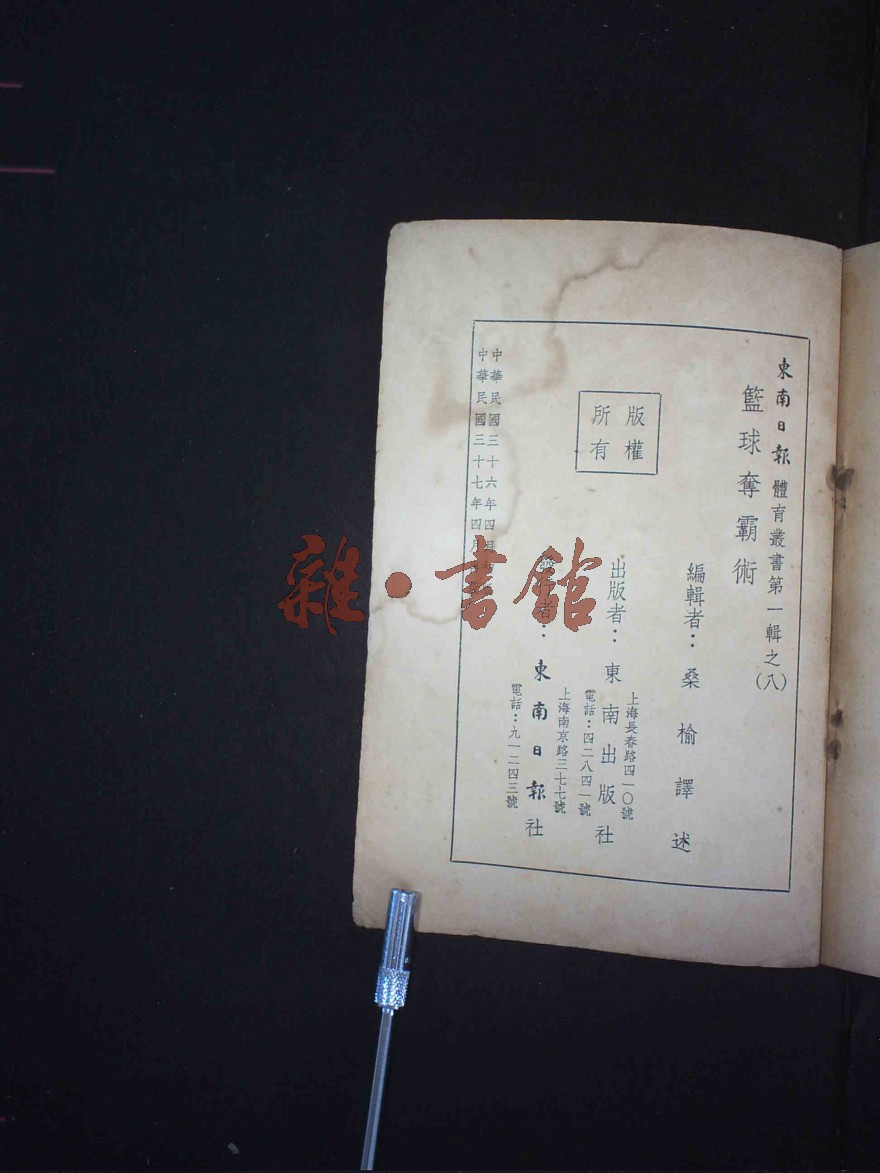 東南日報 體育叢書第一輯之(八)
籃球奪霸術
編輯者：桑榆譯述
上海長春路四一〇號
出版者：東南出版社
電話：四二八四一號
版權
所有
上海南京路三七七號
者：東南日報社
電話：九一二四三號
中華民國三十六年四月
中華民國三十七年四月
雜·書館